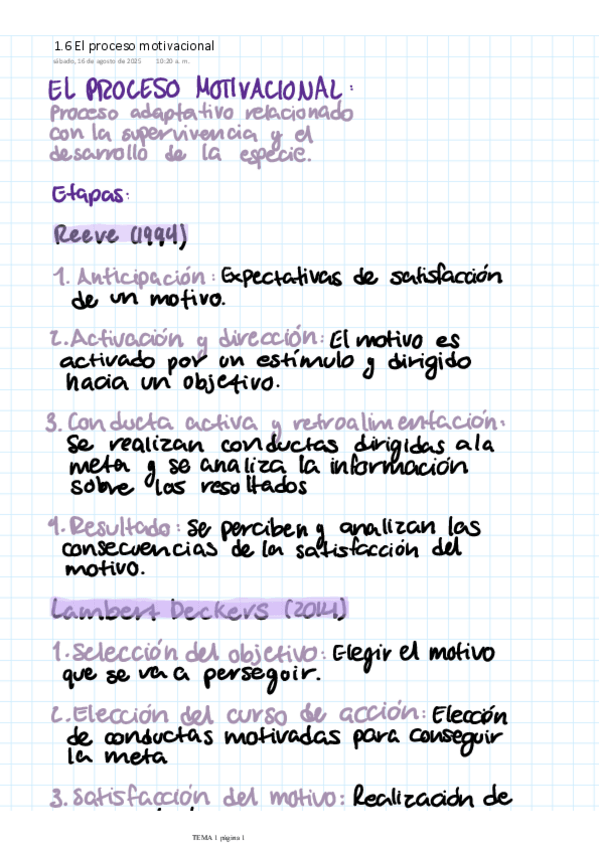 1.6 El proceso motivacional
sábado, 16 de agosto de 2025 10:20 a. m.
EL PROCESO MOTIVACIONAL:
Proceso adaptativo relacionado
con la supervivencia y el
desarrollo de la especie.
Etapas:
Reeve (1994)
1. Anticipación: Expectativas de satisfacción
de un motivo.
2. Activación y dirección: El motivo es
activado por un estímulo y dirigido
hacia un objetivo.
3. Conducta activa y retroalimentación:
Se realizan conductas dirigidas a la
meta y se analiza la información
sobre los resultados
4. Resultado: Se perciben y analizan las
consecuencias de la satisfacción del
motivo.
Lambert Deckers (2014)
1. Selección del objetivo: Elegir el motivo
que se va a perseguir.
2. Elección del curso de acción: Elección
de conductas motivadas para conseguir
la meta
3. Satisfacción del motivo: Realización de
TEMA 1 página 1